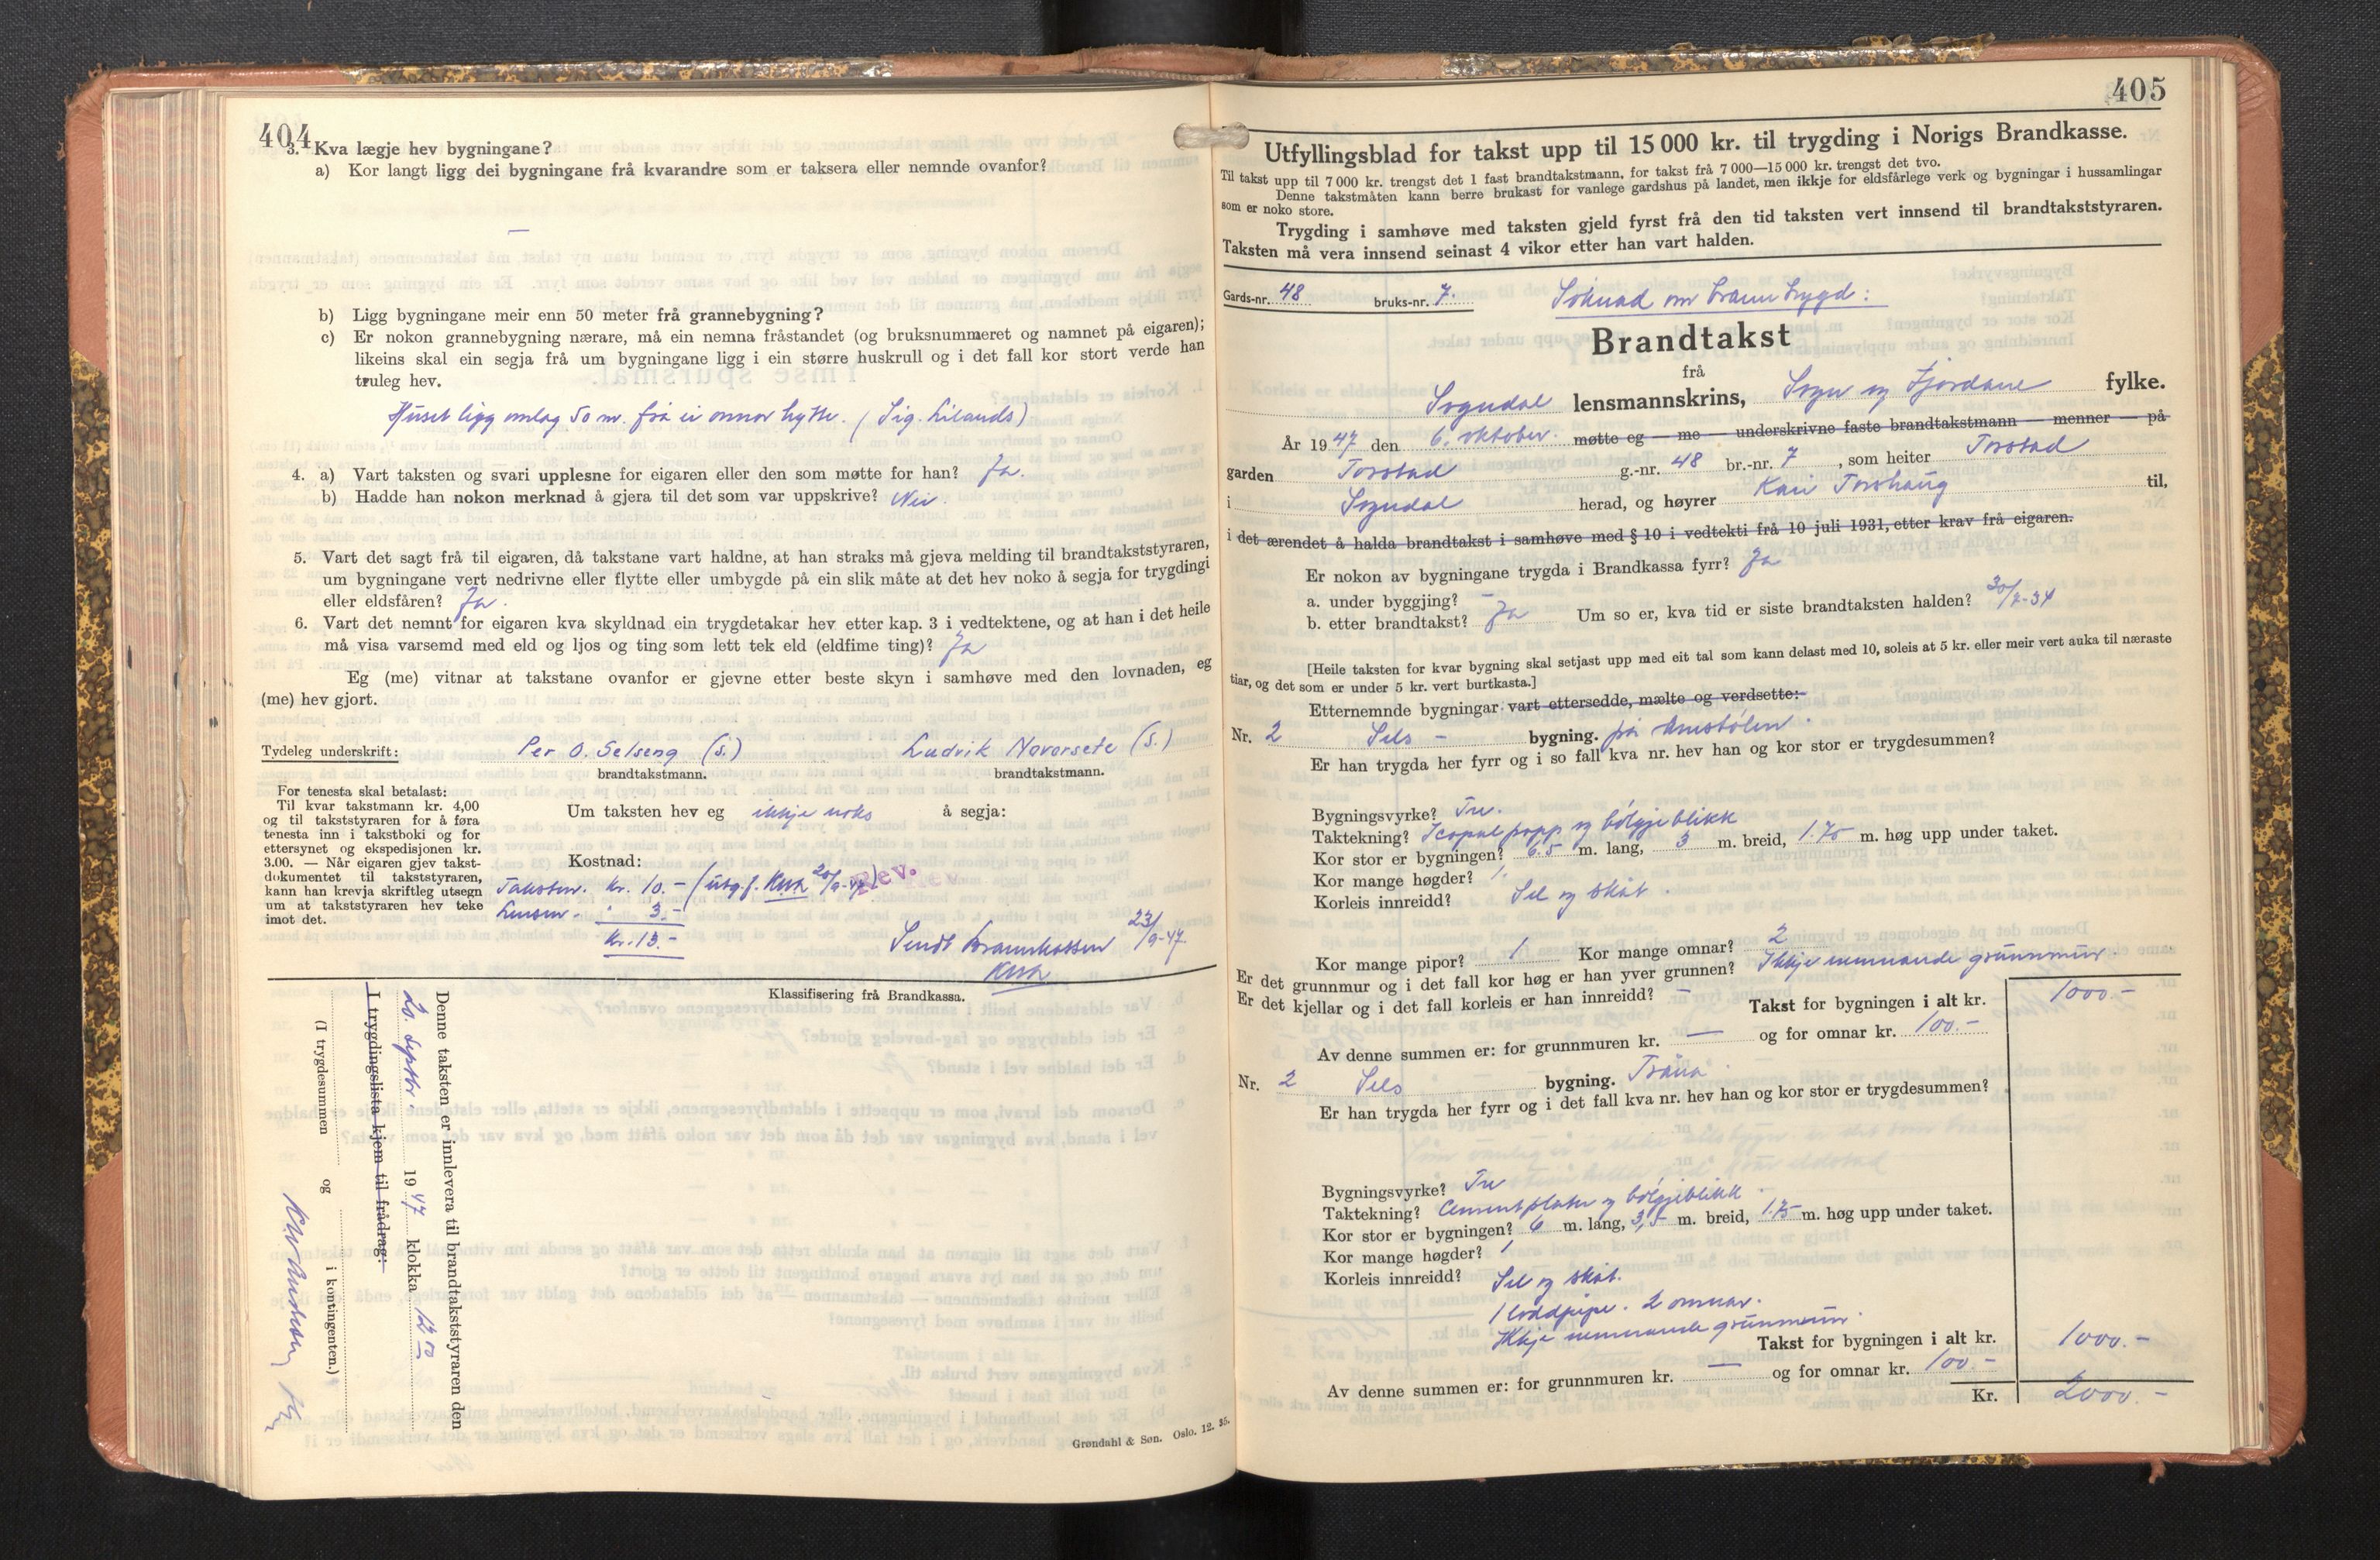 404
3. Kva lægje hev bygningane?
a) Kor langt ligg dei bygningane frå kvarandre som er taksera eller nemnde ovanfor?
—
b) Ligg bygningane meir enn 50 meter frå grannebygning?
c) Er nokon grannebygning nærare, må ein nemna fråstandet (og bruksnummeret og namnet på eigaren);
likeins skal ein segja frå um bygningane ligg i ein større huskrull og i det fall kor stort verde han
truleg hev.
Huset ligg omlag 50 m. frå ei onnor hytte. (Sig. Lilands)
4. a) Vart taksten og svari upplesne for eigaren eller den som møtte for han? Ja.
b) Hadde han nokon merknad å gjera til det som var uppskrive? Nei.
5. Vart det sagt frå til eigaren, då takstane vart haldne, at han straks må gjeva melding til brandtakststyraren,
um bygningane vert nedrivne eller flytte eller umbygde på ein slik måte at det hev noko å segja for trygdingi
eller eldsfåren? Ja.
6. Vart det nemnt for eigaren kva skyldnad ein trygdetakar hev etter kap. 3 i vedtektene, og at han i det heile
må visa varsemd med eld og ljos og ting som lett tek eld (eldfime ting)? Ja
Eg (me) vitnar at takstane ovanfor er gjevne etter beste skyn i samhøve med den lovnaden, eg
(me) hev gjort.
Tydeleg underskrift: Per O. Selseng (s.) Ludvik Navarsete (s.)
brandtakstmann. brandtakstmann.
For tenesta skal betalast:
Til kvar takstmann kr. 4,00
og til takststyraren for å føra
tenesta inn i takstboki og for
ettersynet og ekspedisjonen kr.
3.00. — Når eigaren gjev takst-
dokumentet til takststyraren,
kann han krevja skriftleg utsegn
um at takststyraren hev teke
imot det.
Um taksten hev eg ikkje noko å segja:
Kostnad:
Takstm. kr. 10.- (utg. f. 20/9-47) Rev.
Lensm. " 3.-
Kr. 13.-
Sendt Brannkassen 23/9-47.
Klassifisering frå Brandkassa.
Denne taksten er innlevera til brandtakststyraren den
20. septbr. 1947 klokka 12 00
I trygdingslista kjem til frådrag:
(I trygdesummen og i kontingenten.)
Grøndahl & Søn. Oslo. 12. 35.
405
Utfyllingsblad for takst upp til 15 000 kr. til trygding i Norigs Brandkasse.
Til takst upp til 7 000 kr. trengst det 1 fast brandtakstmann, for takst frå 7 000—15 000 kr. trengst det tvo.
Denne takstmåten kann berre brukast for vanlege gardshus på landet, men ikkje for eldsfårlege verk og bygningar i hussamlingar
som er noko store.
Trygding i samhøve med taksten gjeld fyrst frå den tid taksten vert innsend til brandtakststyraren.
Taksten må vera innsend seinast 4 vikor etter han vart halden.
Gards-nr. 48 bruks-nr. 7. Søknad om branntrygd:
Brandtakst
frå
Sogndal lensmannskrins, Sogn og Fjordane fylke.
År 1947 den 6. oktober. møtte eg — me — underskrivne faste brandtakstmann — menner — på
garden Torstad g.-nr. 48 br.-nr. 7, som heiter Torstad
i Sogndal herad, og høyrer Kari Torshaug til,
i det ærendet å halda brandtakst i samhøve med § 10 i vedtekti frå 10 juli 1931, etter krav frå eigaren.
Er nokon av bygningane trygda i Brandkassa fyrr? Ja
a. under byggjing? —
b. etter brandtakst? Ja Um so er, kva tid er siste brandtaksten halden? 20/7-34
[Heile taksten for kvar bygning skal setjast upp med eit tal som kann delast med 10, soleis at 5 kr. eller meir vert auka til næraste
tiar, og det som er under 5 kr. vert burtkasta.]
Etternemnde bygningar vart ettersedde, mælte og verdsette:
Nr. 2 Sels - bygning. på
Er han trygda her fyrr og i so fall kva nr. hev han og kor stor er trygdesummen?
Bygningsvyrke? Tre.
Taktekning? Icopal papp og bølgjeblikk
Kor stor er bygningen? 6.5 m. lang, 3 m. breid, 1.75 m. høg upp under taket.
Kor mange høgder? 1.
Korleis innreidd? Sel og skåt.
Kor mange pipor? 1 Kor mange omnar? 2
Er det grunnmur og i det fall kor høg er han yver grunnen? Ikkje nemnande grunnmur.
Er det kjellar og i det fall korleis er han innreidd? — Takst for bygningen i alt kr. 1000.-
Av denne summen er: for grunnmuren kr. — og for omnar kr. 100.-
Nr. 2 Sels bygning.
Er han trygda her fyrr og i det fall kva nr. hev han og kor stor er trygdesummen?
Bygningsvyrke? Tre
Taktekning? Cementplater og bølgjeblikk
Kor stor er bygningen? 6 m. lang, 3,5 m. breid, 1.75 m. høg upp under taket.
Kor mange høgder? 1
Korleis innreidd? Sel og skåt.
1 loddpipe. 2 omnar.
Ikkje nemnande grunnmur.
Takst for bygningen i alt kr. 1000.-
Av denne summen er: for grunnmuren kr. — og for omnar kr. 100.-
Kr. 2000.-